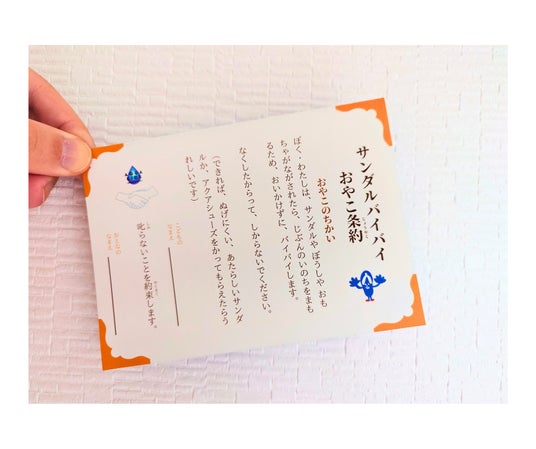 サンダルバイバイ
おやこ条約
おやこのちかい
ぼく・わたしは、サンダルや ぼうしや おも
ちゃがながされたら、じぶんのいのちをまも
るため、おいかけずに、バイバイします。
なくしたからって、しからないでください。
(できれば、ぬげにくい、あたらしいサンダ
ルか、アクアシューズをかってもらえたらう
れしいです)
叱らないことを約束します。